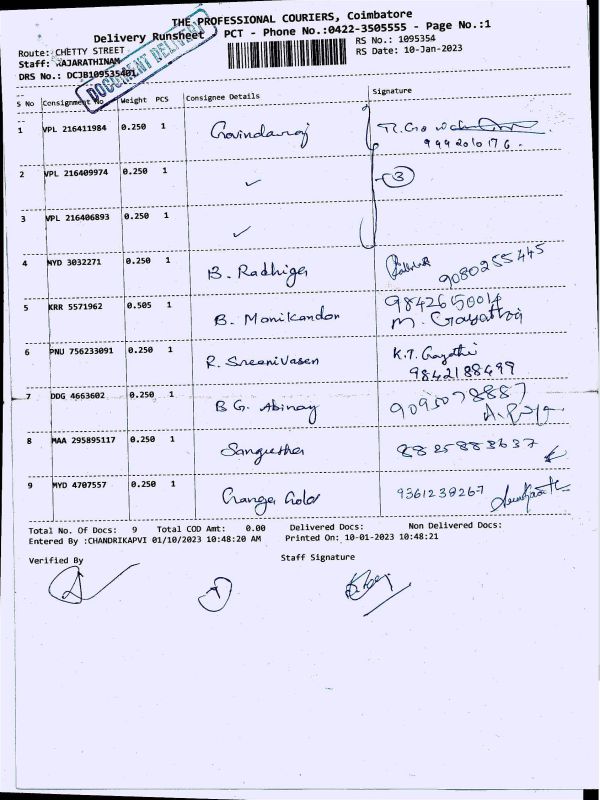 THE PROFESSIONAL COURIERS, Coimbatore
Delivery Runsheet PCT - Phone No.:0422-3505555 - Page No.:1
Route: CHETTY STREET
RS No.: 1095354
Staff: RAJARATHINAM
RS Date: 10-Jan-2023
DRS No.: DCJB109535401
DOCUMENT DELIVERY
S No Consignment No Weight PCS Consignee Details Signature
1 VPL 216411984 0.250 1 Govindaraj
9442010176.
2 VPL 216409974 0.250 1 ✓ 3
3 VPL 216406893 0.250 1 ✓
4 MYD 3032271 0.250 1 B. Radhiga 9080255445
5 KRR 5571962 0.505 1 B. Manikandan 9842650014
M. Gayathri
6 PNU 756233091 0.250 1 R. Sreenivasen K.T. Gayathi
9842188499
7 DDG 4663602 0.250 1 B G. Abinay 9095078887
8 MAA 295895117 0.250 1 Sangeetha 8825883637
9 MYD 4707557 0.250 1 Ganga Gold 9361238267
Total No. Of Docs: 9 Total COD Amt: 0.00 Delivered Docs: Non Delivered Docs:
Entered By :CHANDRIKAPVI 01/10/2023 10:48:20 AM Printed On: 10-01-2023 10:48:21
Verified By Staff Signature